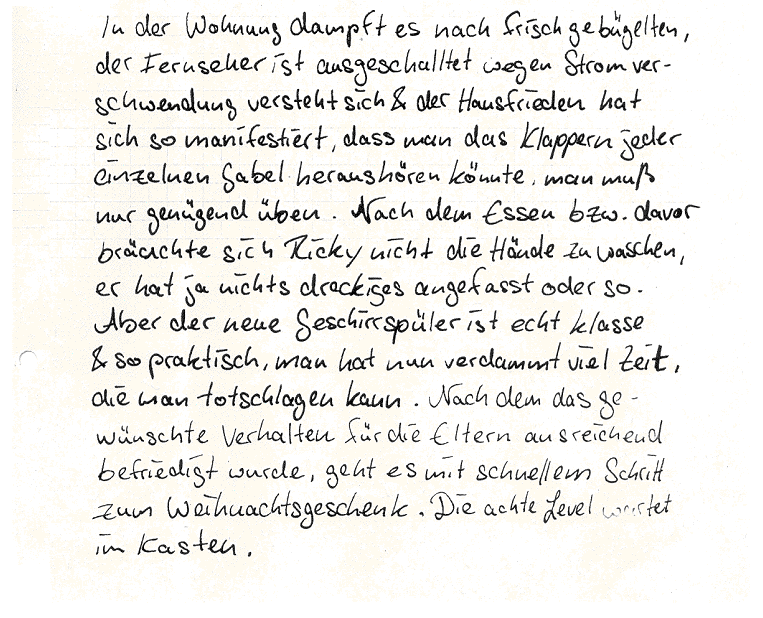 In der Wohnung dampft es nach frisch gebügelten,
der Fernseher ist ausgeschalltet wegen Stromver-
schwendung versteht sich & der Hausfrieden hat
sich so manifestiert, dass man das Klappern jeder
einzelnen Gabel heraushören könnte, man muß
nur genügend üben. Nach dem Essen bzw. davor
bräuchte sich Ricky nicht die Hände zu waschen,
er hat ja nichts dreckiges angefasst oder so.
Aber der neue Geschirrspüler ist echt klasse
& so praktisch, man hat nun verdammt viel Zeit,
die man totschlagen kann. Nach dem das ge-
wünschte Verhalten für die Eltern ausreichend
befriedigt wurde, geht es mit schnellem Schritt
zum Weihnachtsgeschenk. Die achte Level wartet
im Kasten.